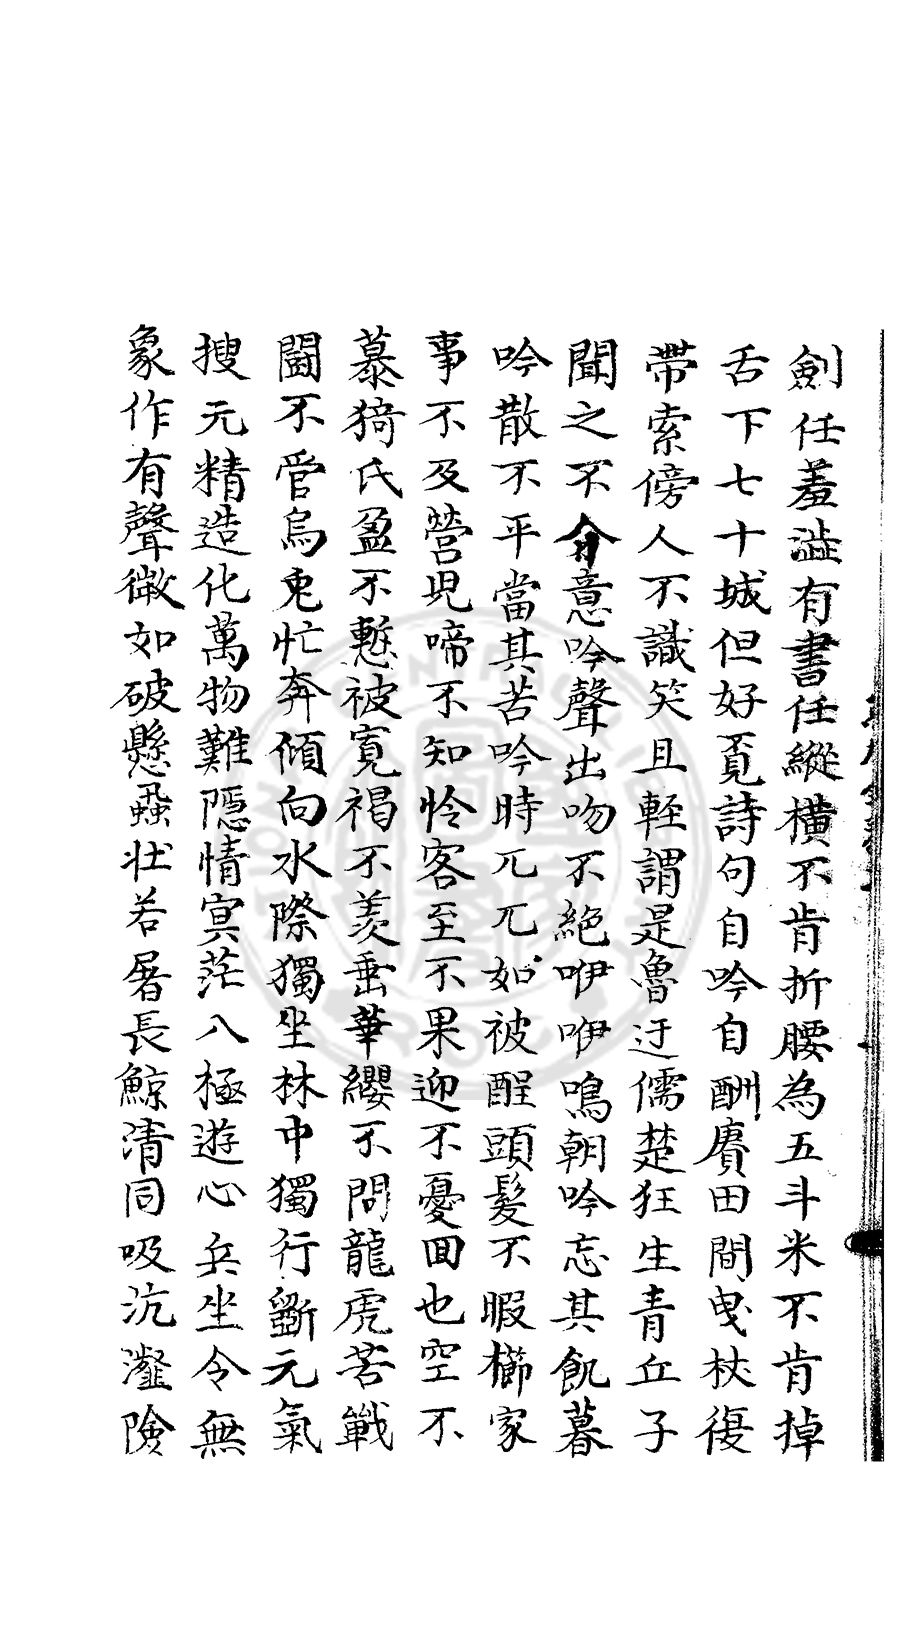 劍任羞澁有書任縱橫不肯折腰為五斗米不肯掉
舌下七十城但好覓詩句自吟自酬賡田間曳杖復
帶索傍人不識笑且輕謂是魯迂儒楚狂生青丘子
聞之不介意吟聲出吻不絕咿咿鳴朝吟忘其飢暮
吟散不平當其苦吟時兀兀如被酲頭髮不暇櫛家
事不及營児啼不知怜客至不果迎不憂回也空不
慕猗氏盈不慙被寬褐不羨垂華纓不問龍虎苦戰
鬪不管烏兎忙奔傾向水際獨坐林中獨行斵元氣
搜元精造化萬物難隱情冥茫八極遊心兵坐令無
象作有聲微如破懸蝨壯若屠長鯨清同吸沆瀣險